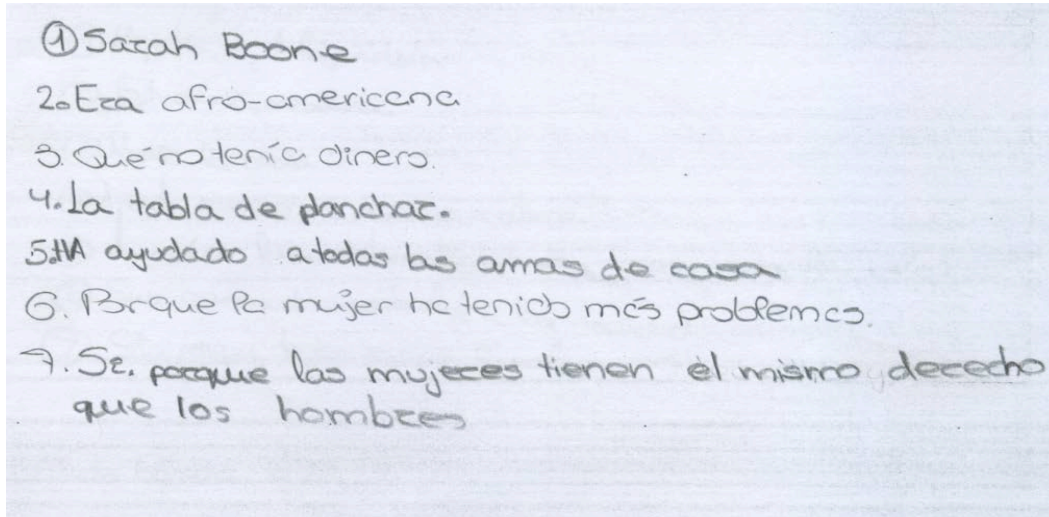 ① Sarah Boone
2. Era afro-americana
3. Qué no tenía dinero.
4. La tabla de planchar.
5. HA ayudado a todas las amas de casa
6. Porque la mujer ha tenido más problemas.
7. Sí. porque las mujeres tienen el mismo derecho
que los hombres